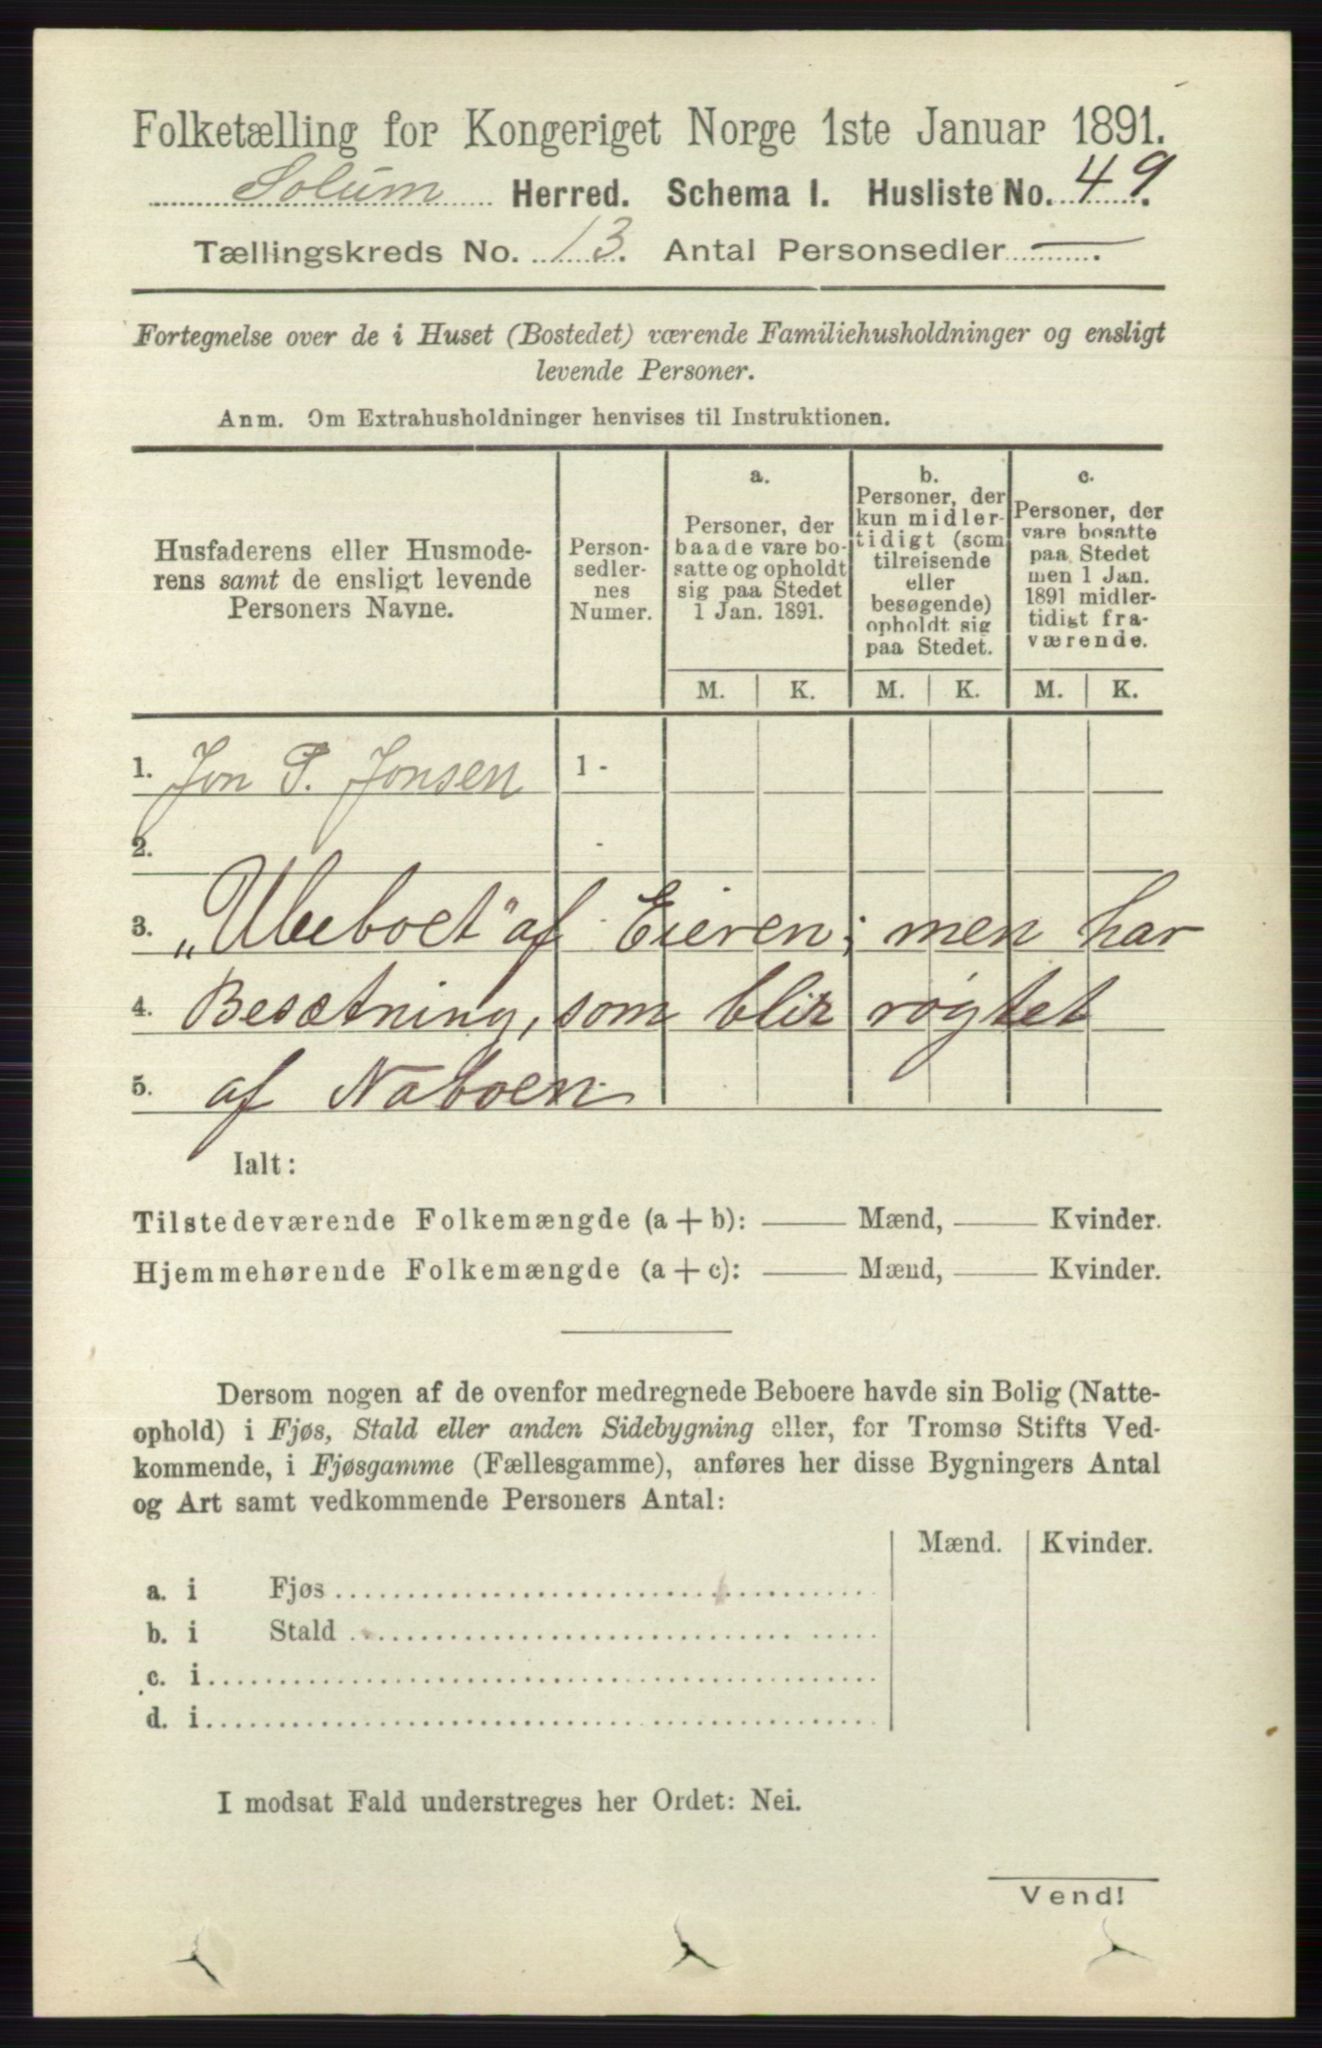 Folketælling for Kongeriget Norge 1ste Januar 1891.
Solum Herred. Schema I. Husliste No. 49.
Tællingskreds No. 13. Antal Personsedler —
Fortegnelse over de i Huset (Bostedet) værende Familiehusholdninger og ensligt
levende Personer.
Anm. Om Extrahusholdninger henvises til Instruktionen.
Husfaderens eller Husmode-
rens samt de ensligt levende
Personers Navne.
Person-
sedler-
nes
Numer.
a.
Personer, der
baade vare bo-
satte og opholdt
sig paa Stedet
1 Jan. 1891.
b.
Personer, der
kun midler-
tidigt (som
tilreisende
eller
besøgende)
opholdt sig
paa Stedet.
c.
Personer, der
vare bosatte
paa Stedet
men 1 Jan.
1891 midler-
tidigt fra-
værende.
M. K. M. K. M. K.
1. Jon P. Jonsen 1 -
2. -
3. „Ubeboet" af Eieren; men har
4. Besætning, som blir røgtet
5. af Naboen
Ialt:
Tilstedeværende Folkemængde (a + b): — Mænd, — Kvinder.
Hjemmehørende Folkemængde (a + c): — Mænd, — Kvinder.
Dersom nogen af de ovenfor medregnede Beboere havde sin Bolig (Natte-
ophold) i Fjøs, Stald eller anden Sidebygning eller, for Tromsø Stifts Ved-
kommende, i Fjøsgamme (Fællesgamme), anføres her disse Bygningers Antal
og Art samt vedkommende Personers Antal:
Mænd. Kvinder.
a. i Fjøs
b. i Stald
c. i
d. i
I modsat Fald understreges her Ordet: Nei.
Vend!